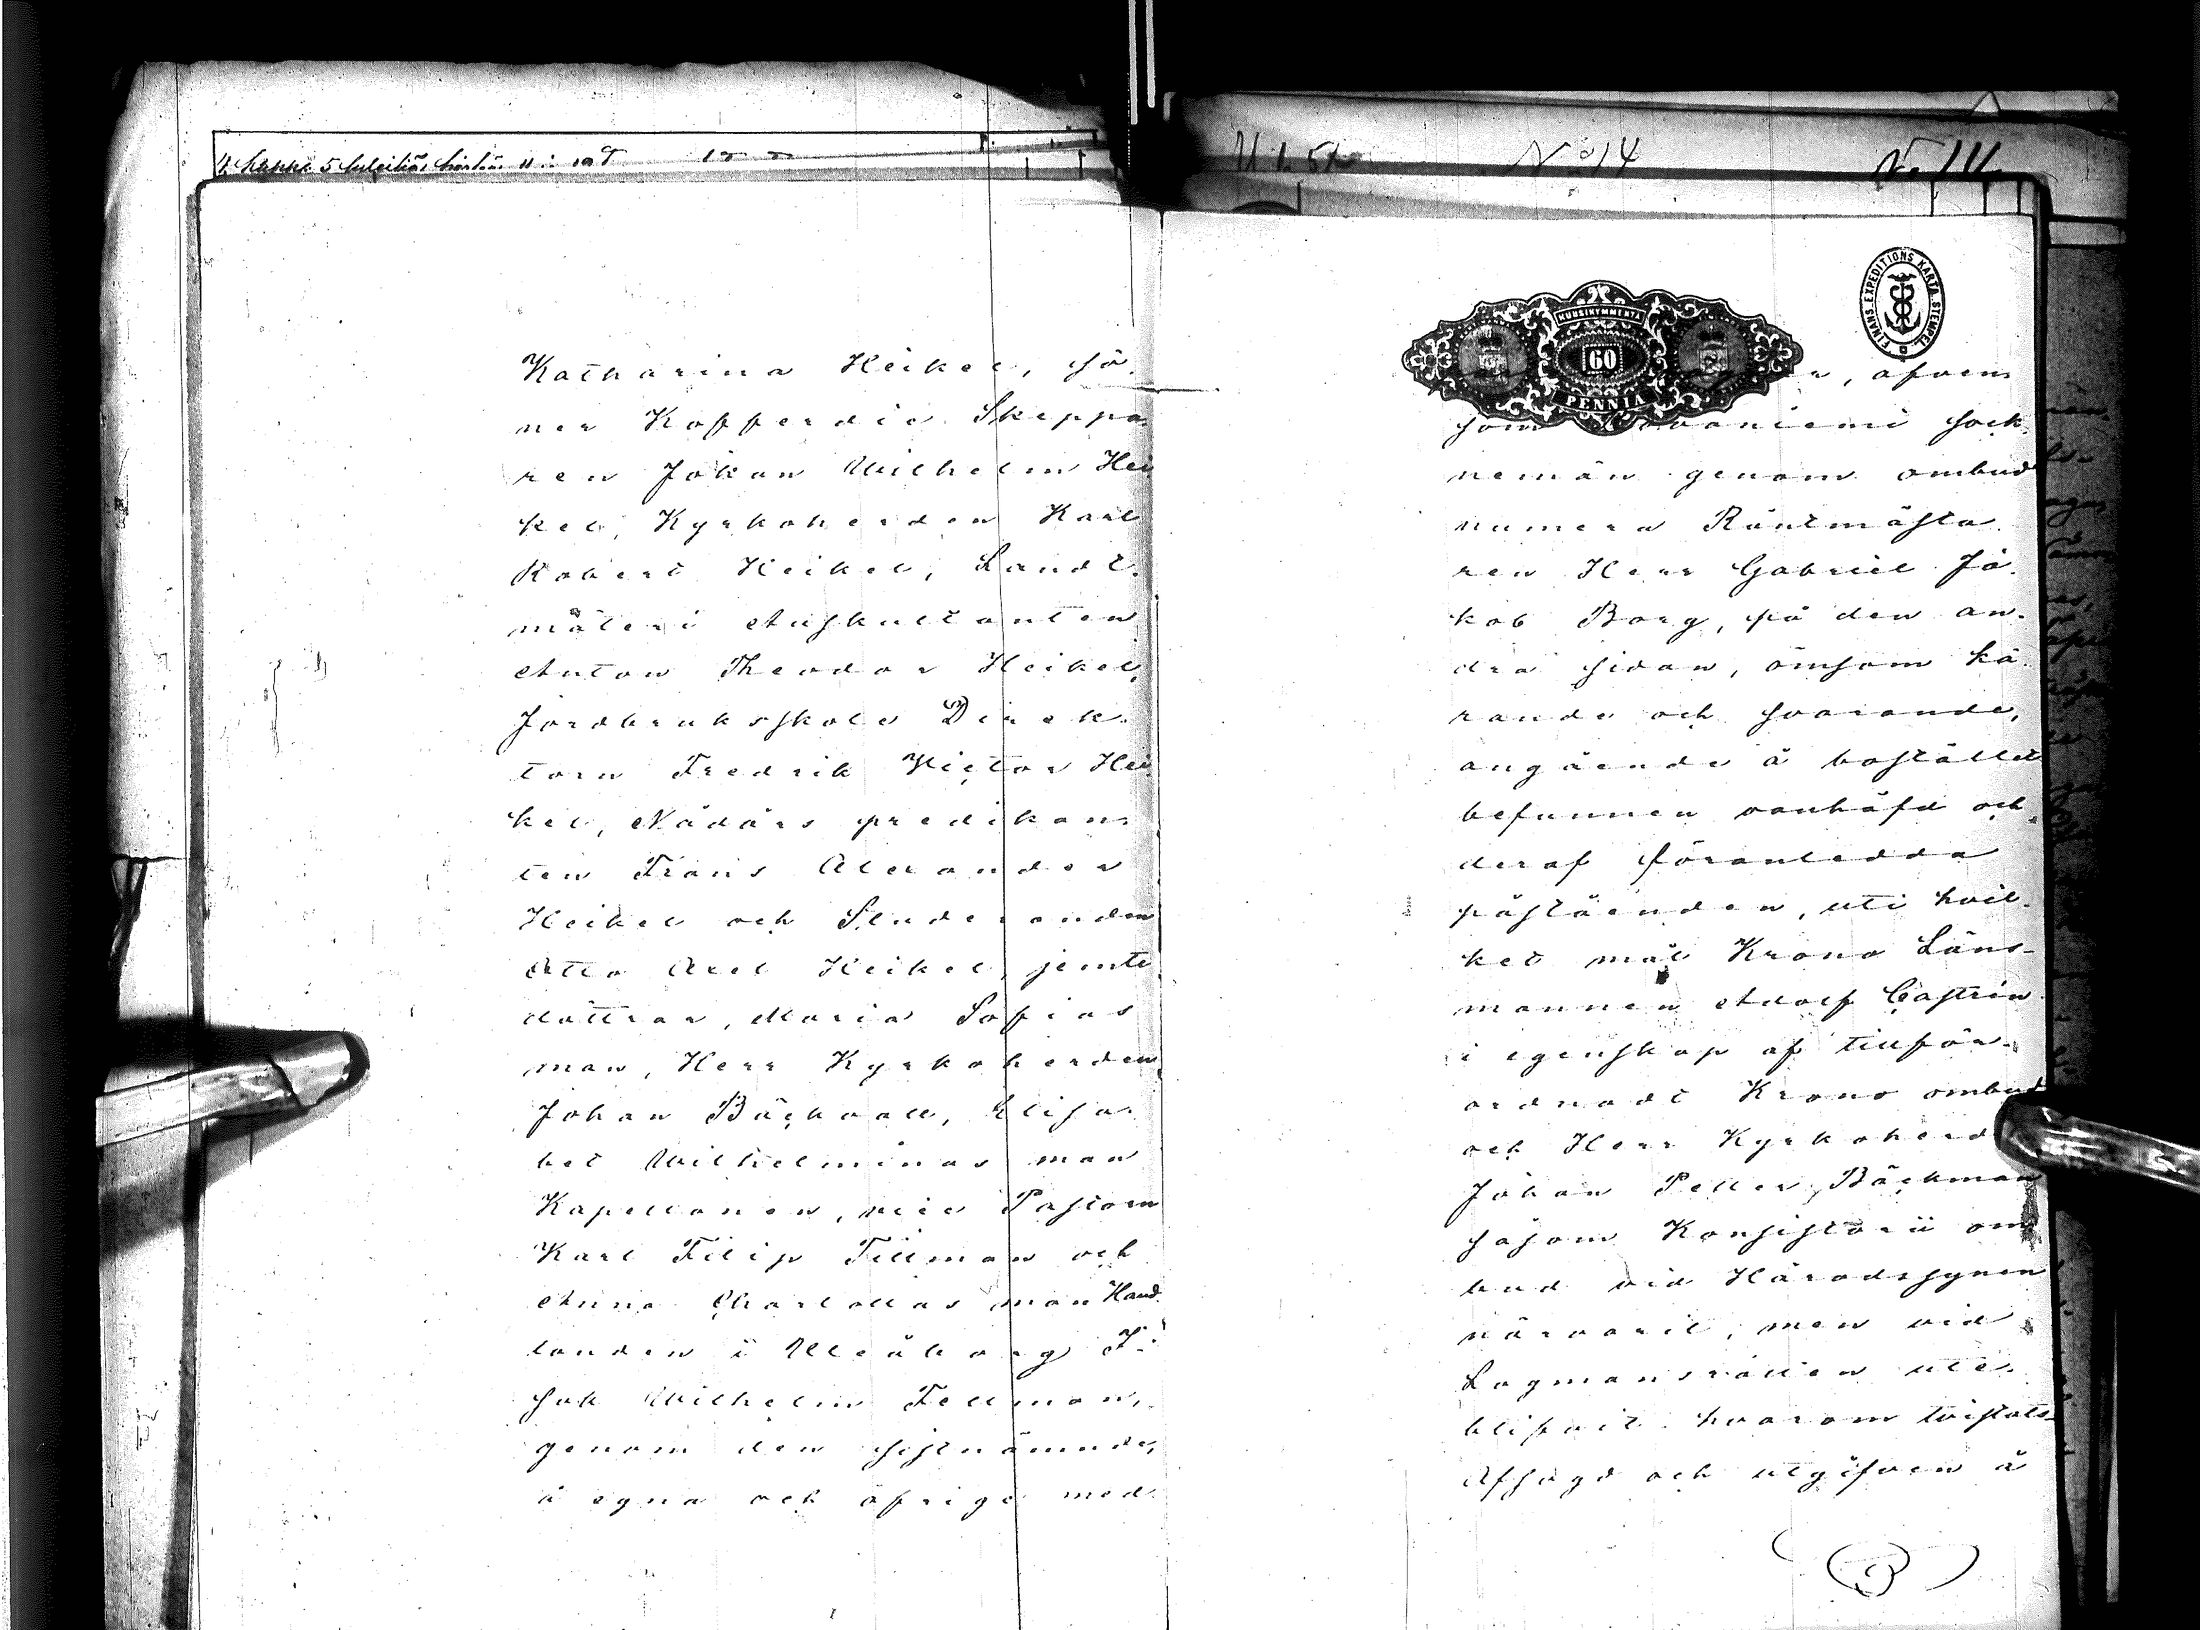 4 kappa 5
Katharina Heikel, sö-
ner Kofferdie Skeppa-
ren Johan Wilhelm Hei-
kel, Kyrkoherden Karl
Robert Heikel, Landt-
mäteri Auskultanten
Anton Theodor Heikel,
Jordbruksskole Direk-
torn Fredrik Victor Hei-
kel, Nådårs predikan-
ten Frans Alexander
Heikel och Studeranden
Otto Axel Heikel, jemte
döttrar, Maria Sofias
man, Herr Kyrkoherden
Johan Bäckvall, Elisa-
bet Wilhelminas man
Kapellanen, vice Pastorn
Karl Filip Tillman och
Anna Charlottas man Hand-
landen i Uleåborg I-
sak Wilhelm Fellman,
genom den sistnämnde,
å egna och öfriga med-
N:o 14
FINANS EXPEDITIONS KARTA STEMPEL
KUUSIKYMMENTÄ
60
PENNIÄ
, äfven
som Rovaniemi sock-
nemän genom ombud
numera Räntmästa-
ren Herr Gabriel Ja-
kob Borg, på den an-
dra sidan, ömsom kä-
rande och svarande,
angående å bostället
befunnen vanhäfd och
deraf föranledda
påståenden, uti hvil-
ket mål Krono Läns-
mannen Adolf Castrén
i egenskap af tillför-
ordnadt Krono ombud
och Herr Kyrkoherd
Johan Petter Bäckman
såsom Konsistorii om-
bud vid Häradssynen
närvarit, men vid
Lagmansrätten ute-
blifvit hvarom tvistats
Afsagd och utgifven å